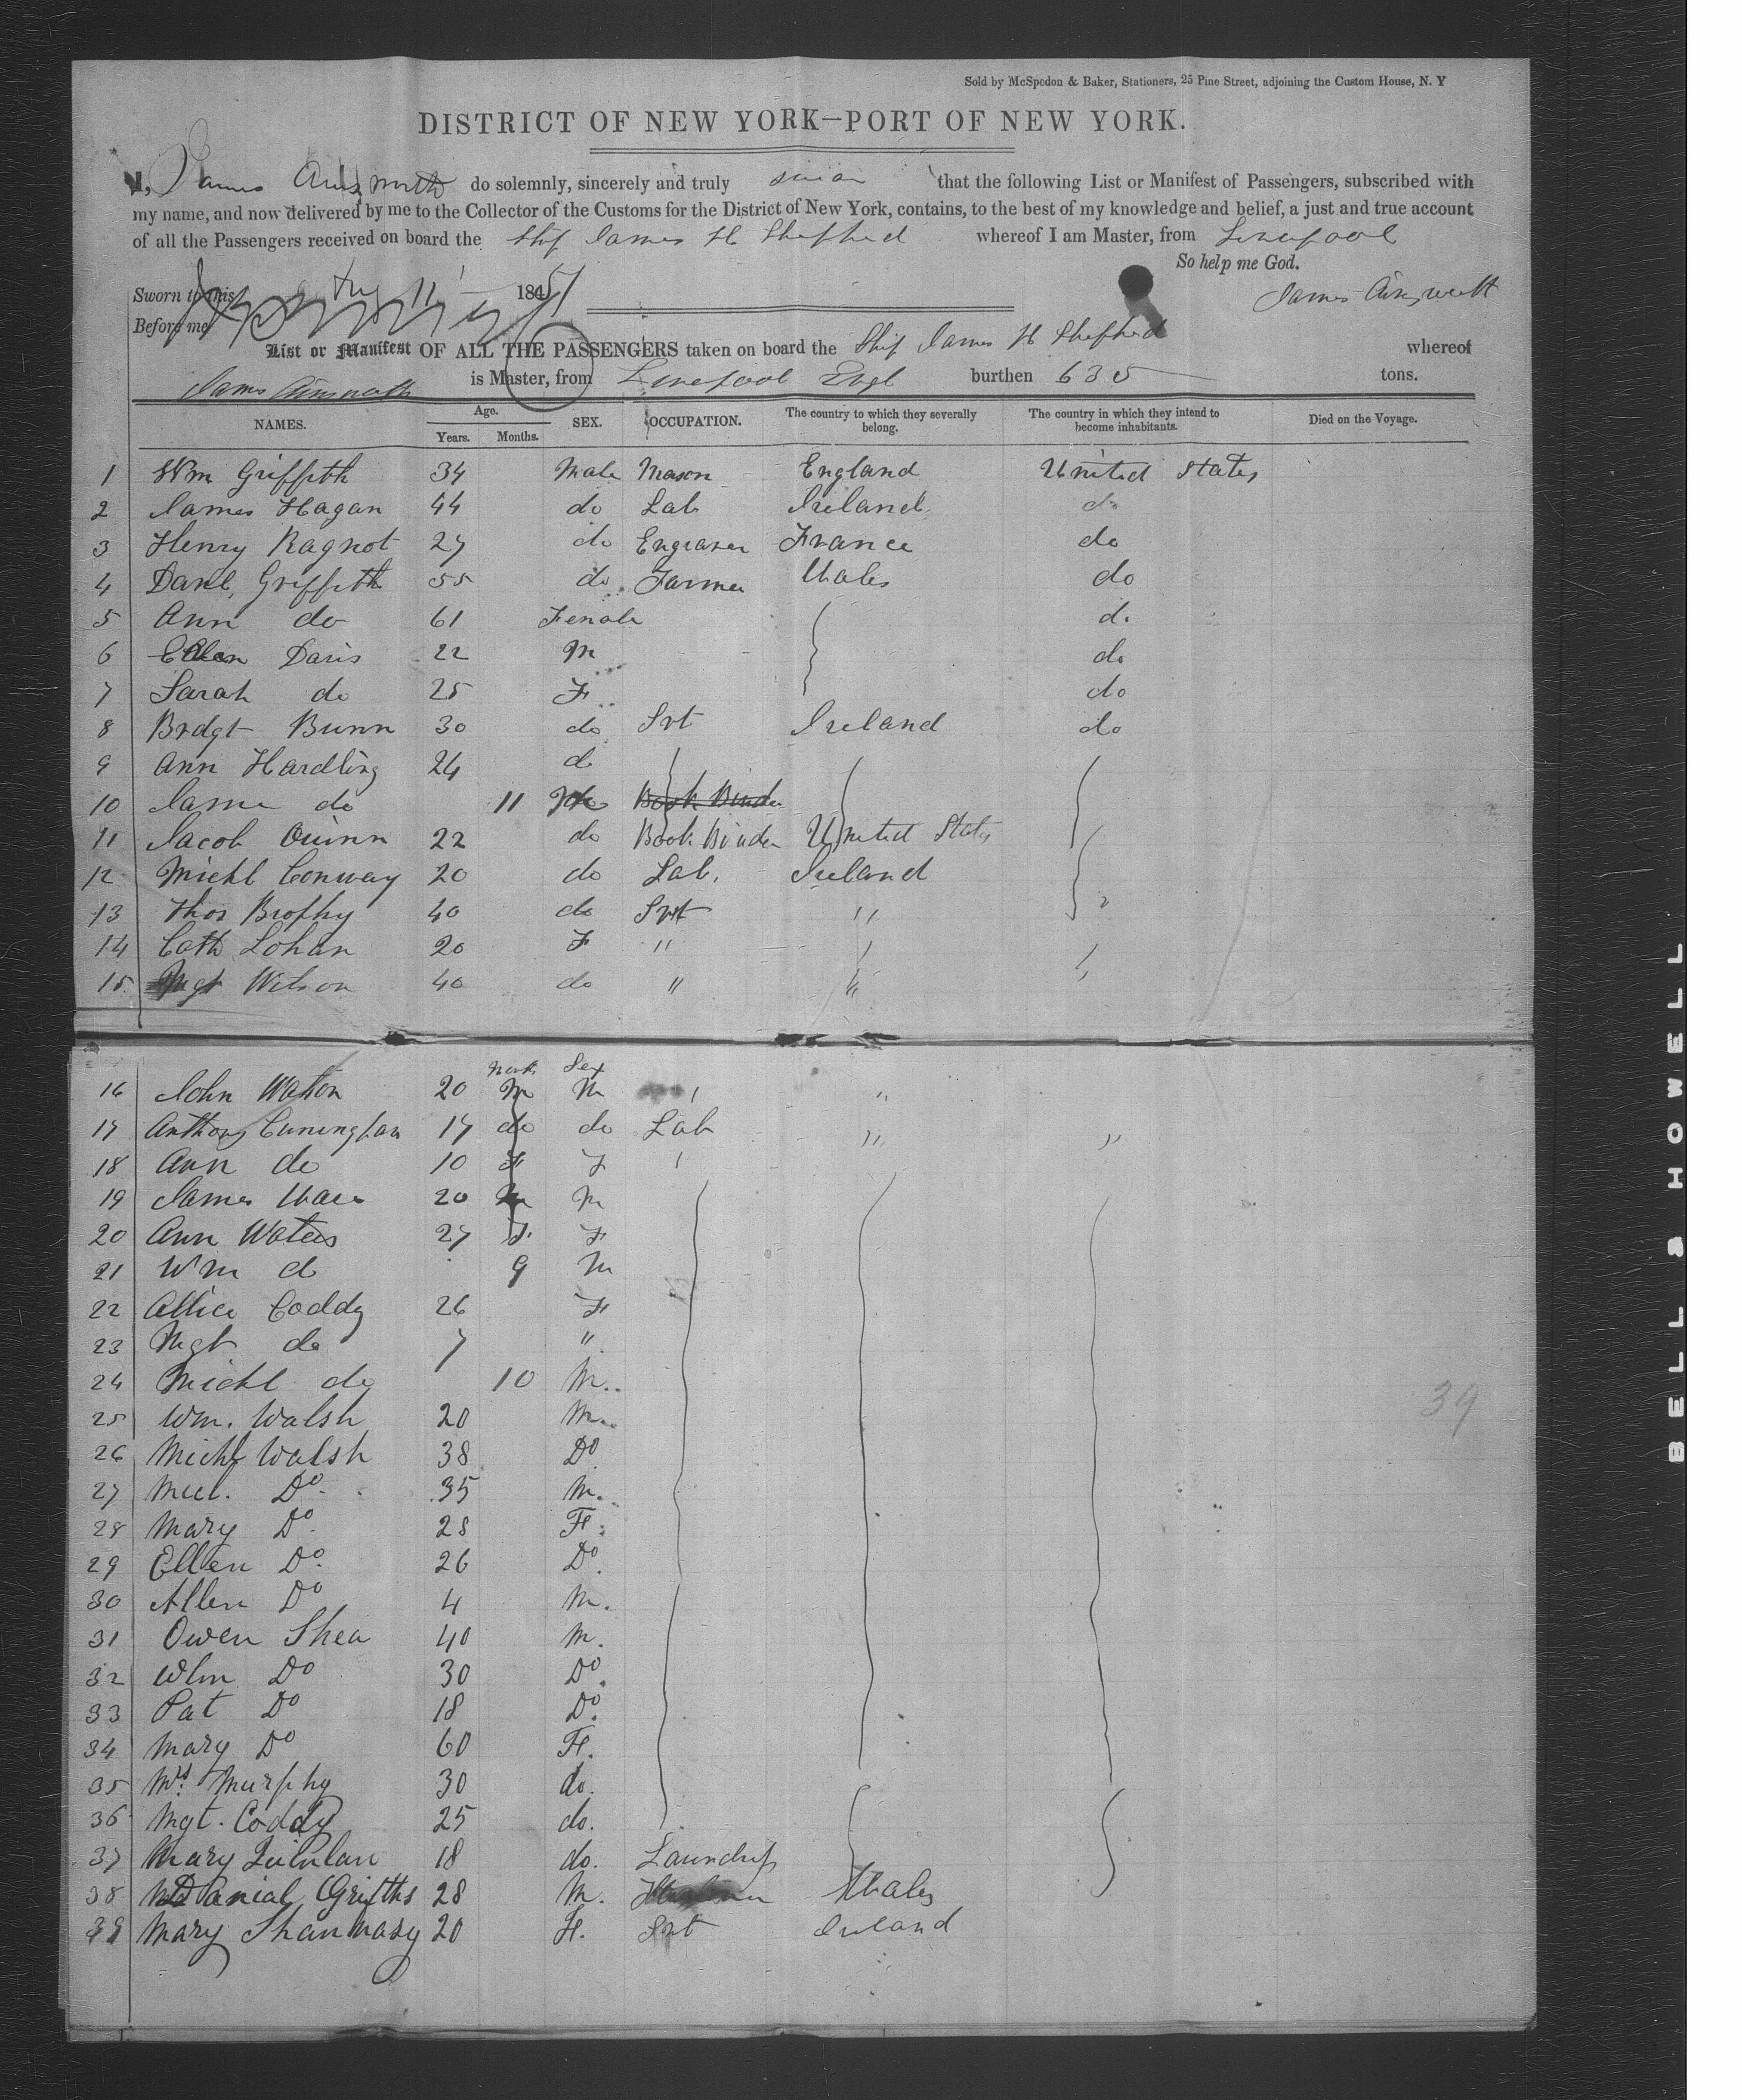 Sold by McSpedon & Baker, Stationers, 25 Pine Street, adjoining the Custom House, N. Y
DISTRICT OF NEW YORK—PORT OF NEW YORK.
I, James Ainsworth do solemnly, sincerely and truly swear that the following List or Manifest of Passengers, subscribed with
my name, and now delivered by me to the Collector of the Customs for the District of New York, contains, to the best of my knowledge and belief, a just and true account
of all the Passengers received on board the Ship James H Shepherd whereof I am Master, from Liverpool
So help me God.
Sworn to this Aug 11 1851
James Ainsworth
Before me
List or Manifest OF ALL THE PASSENGERS taken on board the Ship James H Shepherd whereof
James Ainsworth is Master, from Liverpool Engl burthen 635 tons.
NAMES. Age. Years. Months. SEX. OCCUPATION. The country to which they severally belong. The country in which they intend to become inhabitants. Died on the Voyage.
1 Wm Griffith 34 Male Mason England United States
2 James Hagan 44 do Lab Ireland do
3 Henry Ragnot 27 do Engraver France do
4 Danl, Griffith 55 do Farmer Wales do
5 Ann do 61 Female do
6 Davis 22 M do
7 Sarah do 25 F do
8 Brdgt Bunn 30 do Srt Ireland do
9 Ann Hardling 24 do
10 Jame do 11 do Book Binder
11 Jacob Quinn 22 do Book Binder United States
12 Michl Conway 20 do Lab. Ireland
13 Thos Brophy 40 do Srt "
14 Cath Lohan 20 F "
15 Mgt Wilson 40 do " "
Month Sex
16 John Watson 20 M M "
17 Anthony Cuningham 17 do do Lab " "
18 Ann do 10 F F
19 James 20 M M
20 Ann Waters 27 F. F
21 Wm d 9 M
22 Allice Coddy 26 F
23 Mgt do 7 "
24 Michl do 10 M.
39
25 Wm. Walsh 20 M.
26 Michl Walsh 38 Do
27 Do. 35 M.
28 Mary Do. 28 F.
29 Ellen Do. 26 Do.
30 Allen Do 4 M.
31 Owen Shea 40 M.
32 Wlm Do 30 Do.
33 Pat Do 18 Do.
34 Mary Do 60 F.
35 Mrs Murphy 30 do.
36 Mgt. Coddy 25 do.
37 Mary 18 do. Laundrss
38 Danial Griffths 28 M. Wales
39 Mary 20 F. Srt Ireland
BELL & HOWELL